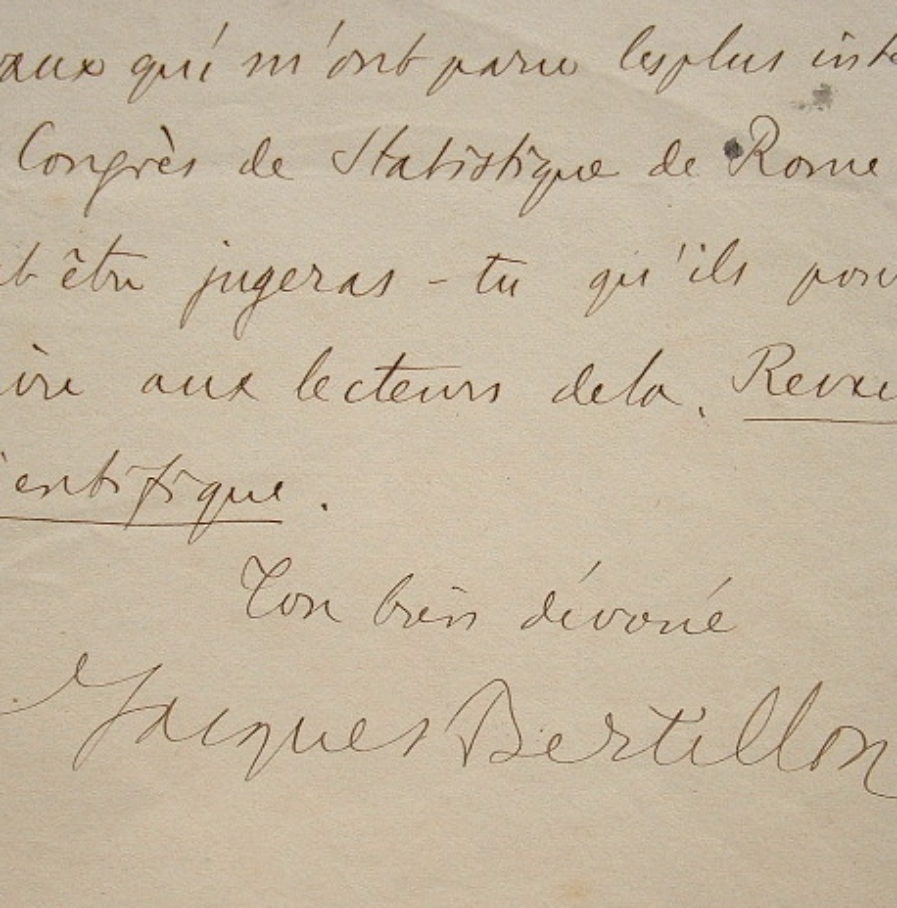 aux qui m'ont paru les plus int
Congrès de Statistique de Rome
t être jugeras-tu qu'ils pour
ire aux lecteurs de la Revue
ientifique.
Ton bien dévoué
Jacques Bertillon